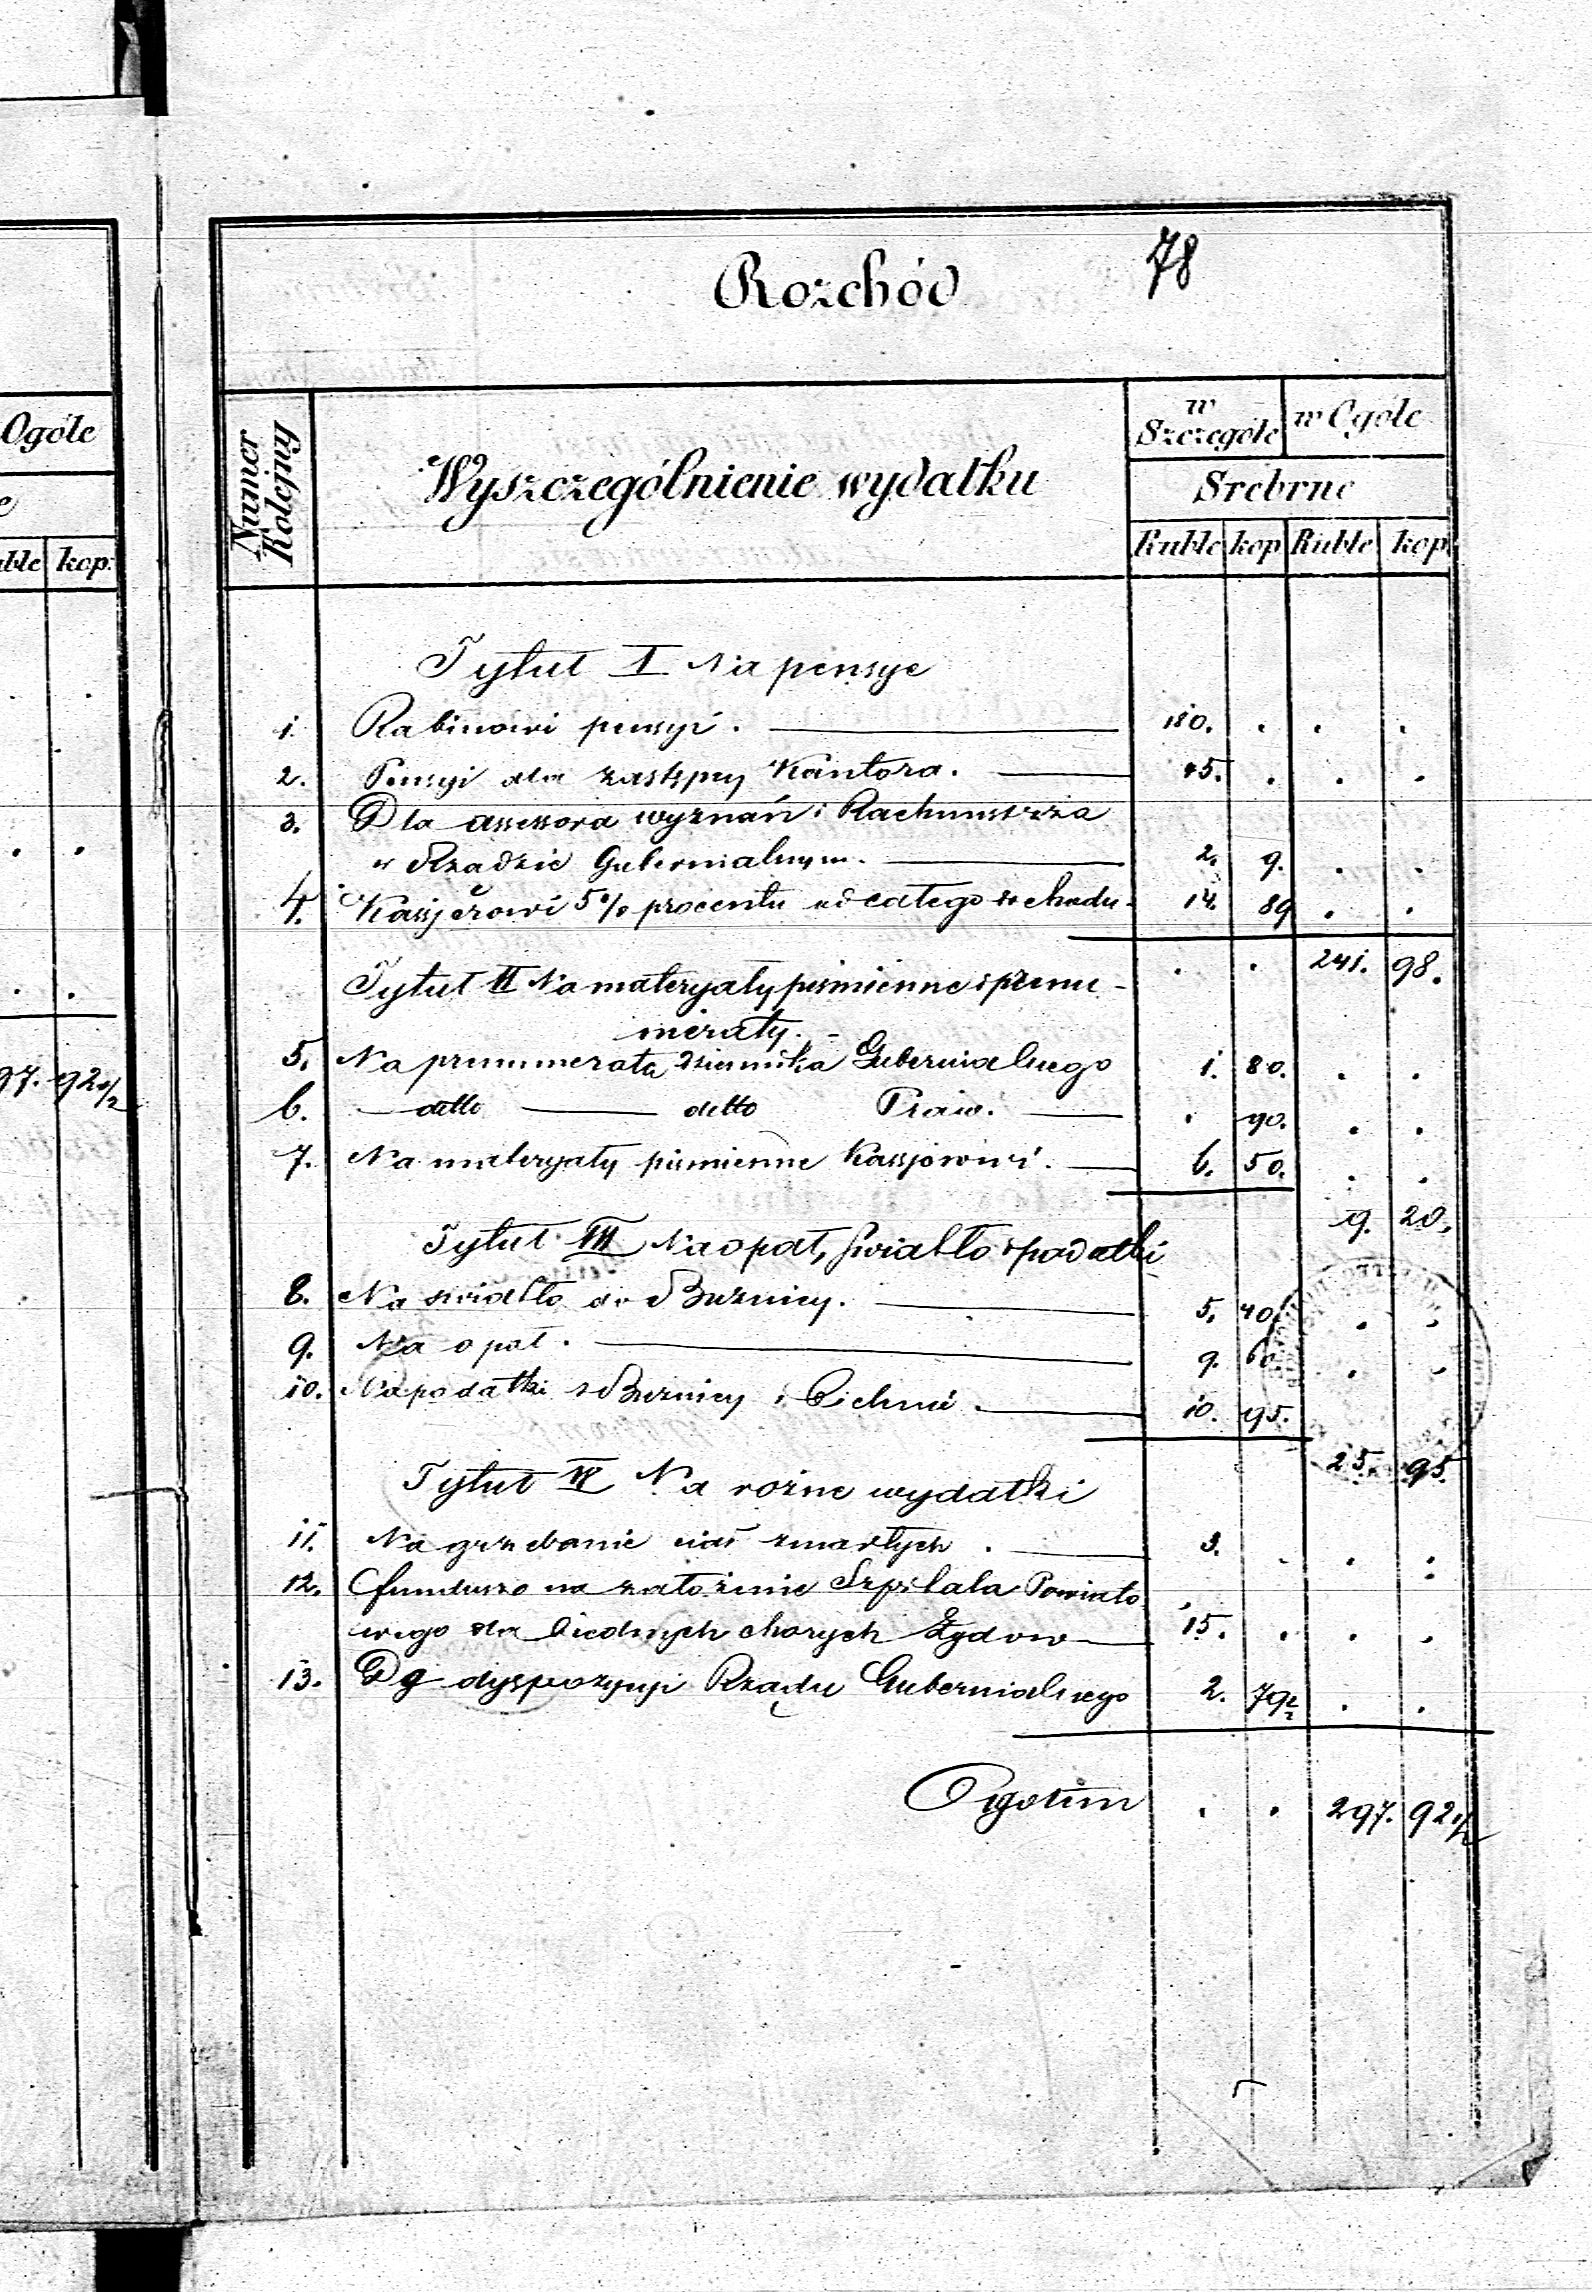 78
Rozchód
Ogóle
Numer Kolejny
Wyszczególnienie wydatku
w Szczególe
w Ogóle
Srebrne
Ruble kop Ruble kop
kop:
Tytuł I Na pensye
1. Rabinowi pensyi. 180. . . .
2. Pensyi dla zastępcy Kantora. 45. . . .
3. Dla assessora wyznań i Rachmistrza
w Rządzie Gubernialnym. 2. 9. . .
4. Kassjerowi 5% procentu od całego dochodu. 14. 89 . .
. . 241. 98.
Tytuł II Na materyały piśmienne i prenu-
meraty.
5. Na prenumerata Dziennika Gubernialnego 1. 80. . .
97. 92 1/2
6. detto detto Praw. . 90. . .
7. Na materyały piśmienne Kassjerowi. 6. 50. . .
9. 20.
Tytuł III Na opał, światło i podatki
8. Na światło do Bużnicy. 5. 40. . .
9. Na opał. 9. 60. . .
10. Na podatki z Bużnicy i 10. 95.
25. 95.
Tytuł IV Na rożne wydatki
11. Na grzebanie ciał zmarłych. 3. . . .
12. fundusze na założenie Szpitala Powiato
wego dla biednych chorych Żydow 15. . . .
13. Do dyspozycyi Rządu Gubernialnego 2. 79 1/2 . .
Ogołem . . 297. 92 1/2